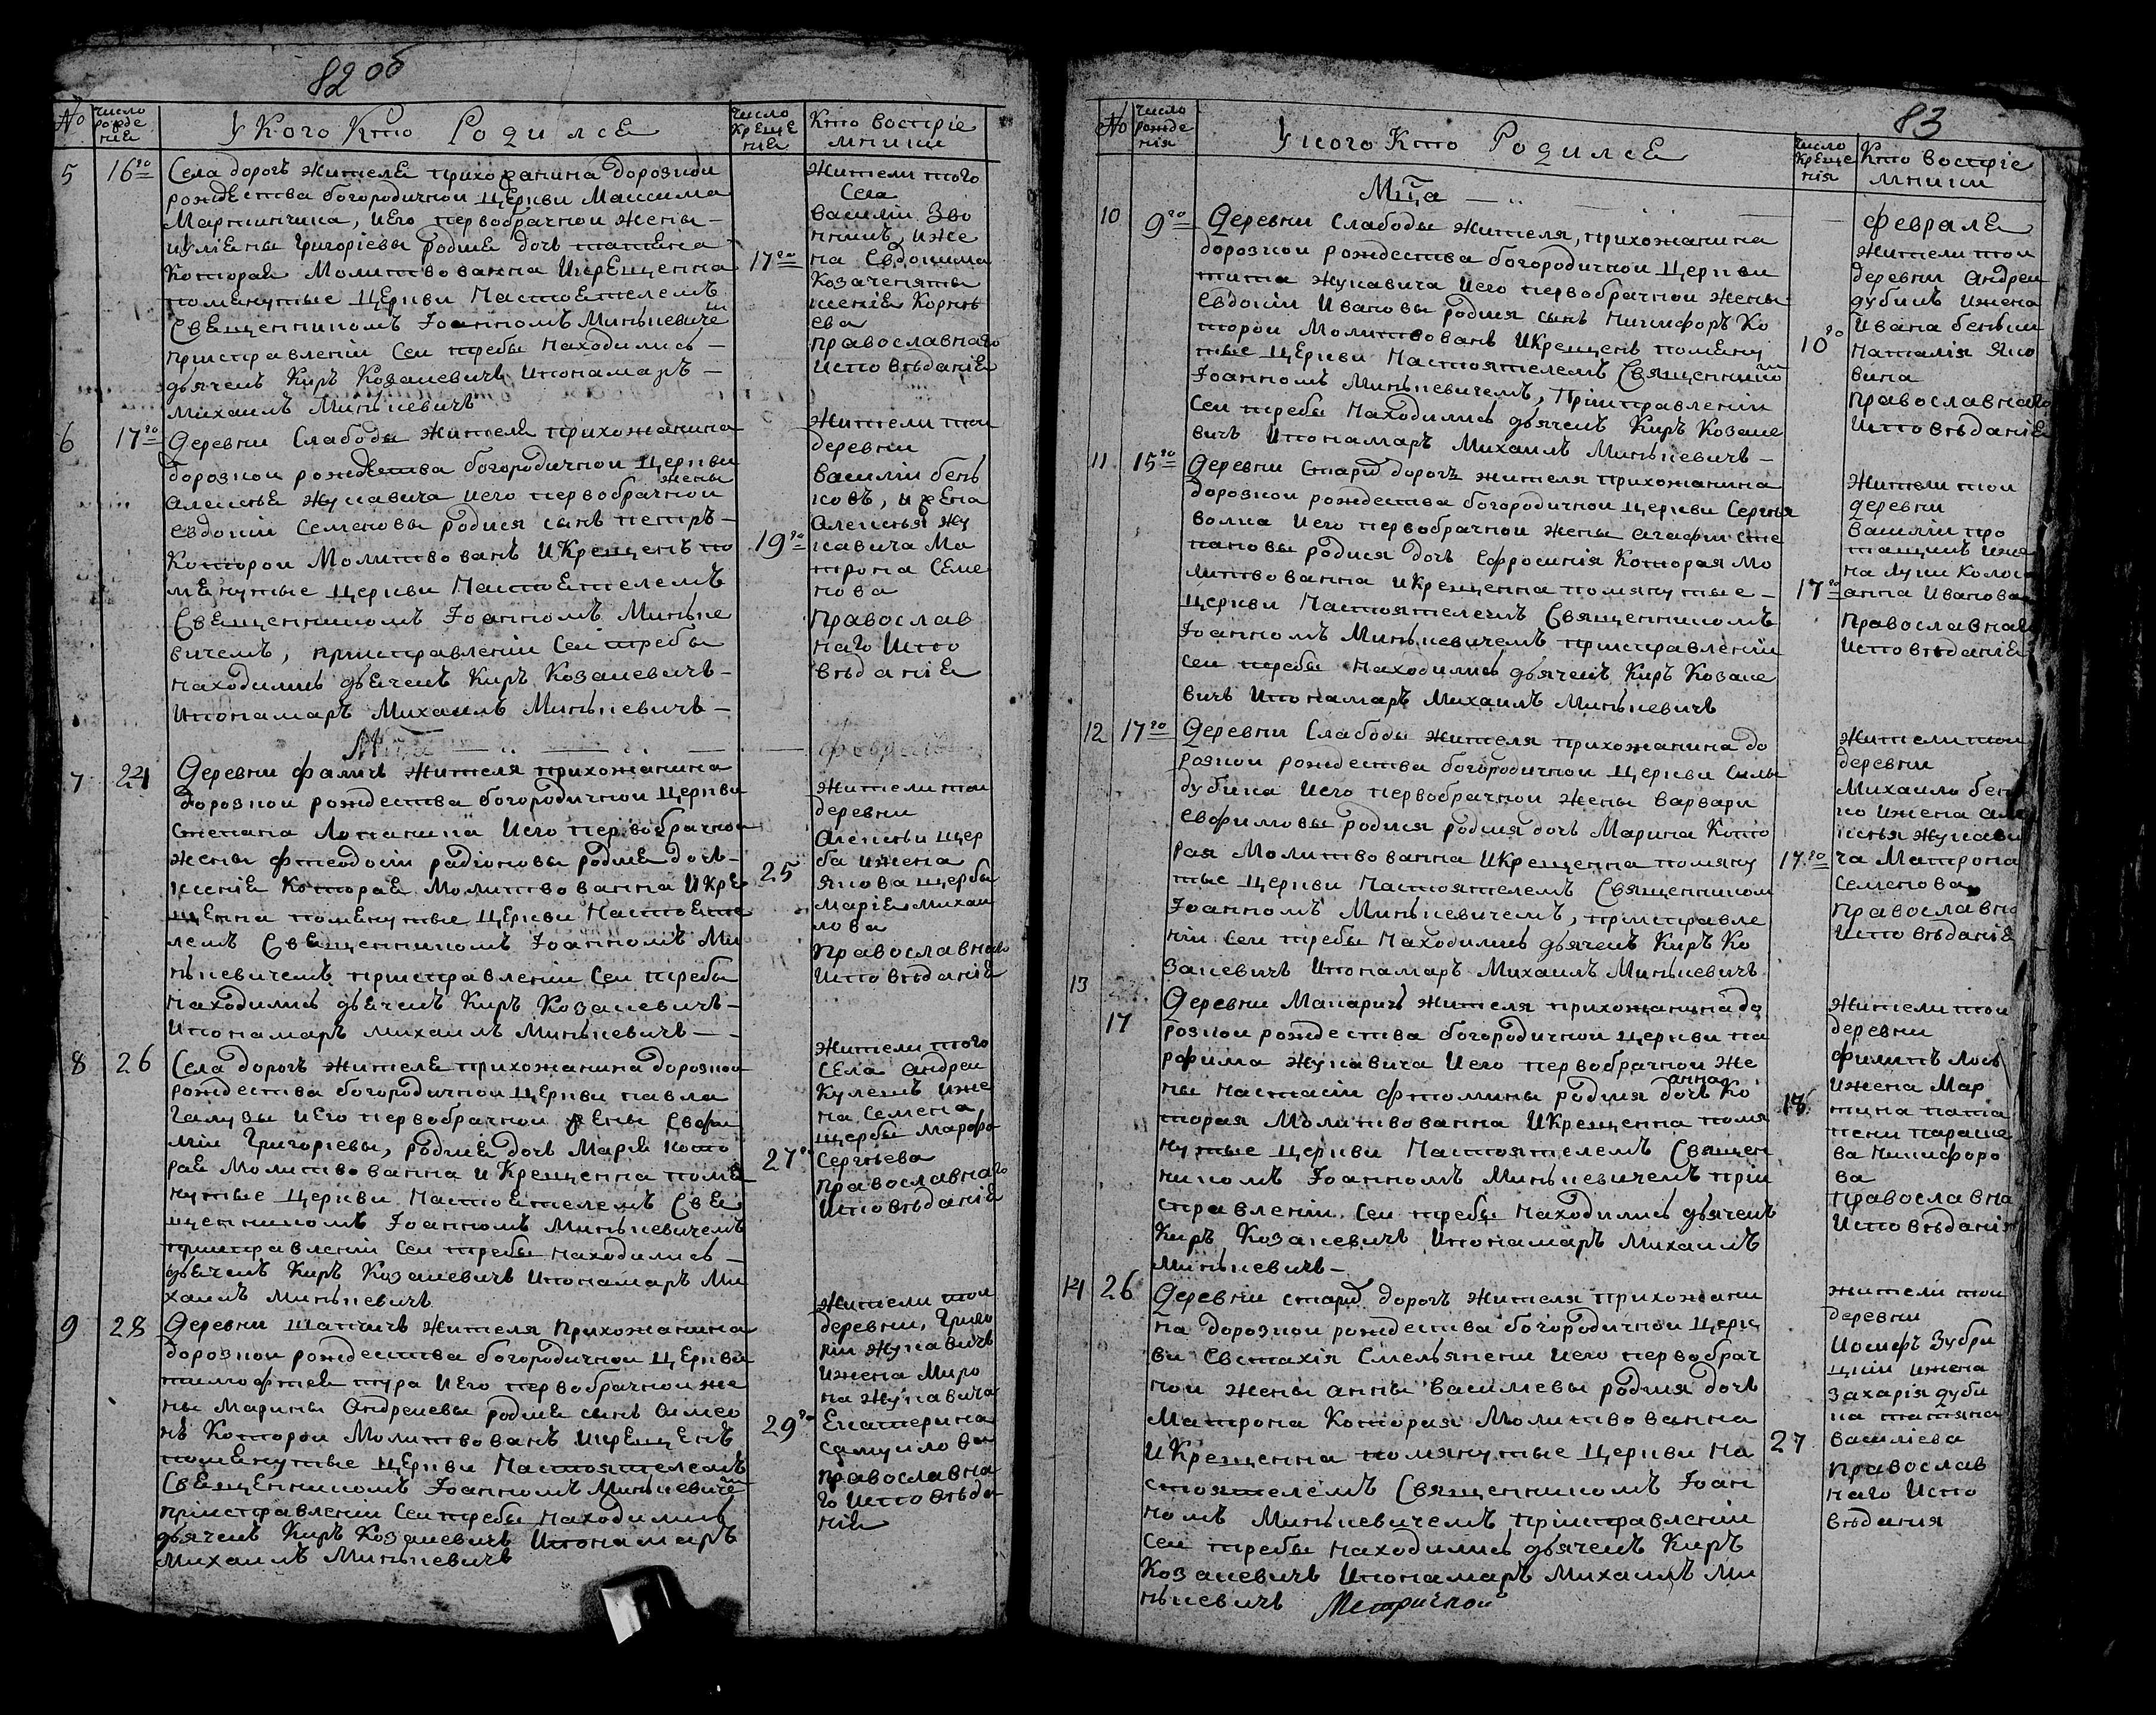 82 об
№
число рожде ниѧ
У Кого Кто Родилсѧ
число крещениѧ
Кто Восприемники
5
16го
Села дорогъ жителѧ прихожанина дорозкой
рождества богородичной церкви Максима
Мартинчика, и его первобрачной жены
иулиены григоріевы родисѧ дочь татѧна
Которая Молитвованна и крещенна
помянутые церкви Настоятелемъ
Священникомъ Іоанномъ Минькевичемъ
приисправленіи сеи требы находились
дьячекъ Киръ Козакевичъ и понамаръ
михаилъ Минькевичъ
17го
жители того
Села
василіи Зво
нникъ, и же
на Евдокима
православнаго
исповѣданіѧ
6
17го
деревни Слабоды жителѧ прихожанина
дорозкои рождества богородичнои церкви
алексѣѧ жукавича и его первобрачнои жены
евдокіи Семеновы родися сынъ петръ
Которои Молитвованъ и Крещенъ по
мянутые церкви Настоятелемъ
Священникомъ Іоанномъ Минькe
вичемъ, приисправленіи сеи требы
находились дьячекъ Киръ Козакевичъ
и понамаръ Михаилъ Минькевичъ
19го
жители тои
деревни
василіи бень
ковъ, и жена
алексѣя жу
кавича Ма
трона Семе
нова
православ
наго испо
вѣданіѧ
7
24
деревни фаличъ жителя прихожанина
дорозкои рождества богородичнои церкви
степана Лопаника и его первобрачнои
жены фтеодосіи радіоновы родисѧ дочь
ксеніѧ которая молитвованна и кре
щенна помянутые церкви настояте
лемъ Священникомъ Іоанномъ Ми
нькевичемъ приисправленіи сеи требы
находились дьячекъ Киръ Козакевичъ
и понамаръ михаилъ минькевичъ
25
жители тои
деревни
алексѣи щер
ба и жена
якова щербы
маріѧ михаи
лова
православнаго
исповѣданіѧ
8
26
Села дорогъ жителѧ прихожанина дорозкои
рождества богородичнои церкви павла
галузы и его первобрачнои жены Евфи
міи григоріевы, родисѧ дочь Маріѧ кото
рая Молитвованна и Крещенна помя
нутые церкви Настоятелемъ Свя
щенникомъ Іоанномъ Минькевичемъ
приисправленіи сеи требы находились
дьячекъ Киръ Козакевичъ и понамаръ Ми
хаилъ минькевичъ
27го
жители того
Села андреи
Кулешъ и же
на Семена
щербы марфа
Сергѣева
православнаго
исповѣданіѧ
9
28
деревни шапчичъ жителя прихожанина
дорозкои рождества богородичнои церкви
тимофтеѧ тура и его первобрачнои же
ны Марины андреевы родисѧ сынъ симео
нъ Которои Молитвованъ и крещенъ
помянутые церкви Настоятелемъ
Священникомъ Іоанномъ Минькевичемъ
приисправленіи сеи требы находились
дьячекъ Киръ Козакевичъ и понамаръ
Михаилъ Минькевичъ
29го
жители тои
деревни, григо
рій жукавичъ
и жена Миро
на жукавича
Екатерина
Самуилова
православна
го исповѣда
ніѧ
83
№
число рожденія
У кого Кто Родилсѧ
число крещенія
Кто восприемники
Мца
февралѧ
10
9го
деревни Слабоды жителя, прихожанина
дорозкои рождества богородичнои церкви
тита жукавича и его первобрачнои жены
евдокіи Ивановы родися сынъ никифоръ Ко
торои Молитвованъ и Крещенъ помяну
тые церкви Настоятелемъ Священникомъ
Іоанномъ Минькевичемъ, приисправленіи
сеи требы находились дьячекъ Киръ Козаке
вичъ и понамаръ Михаилъ Минькевичъ
10го
жители тои
деревни андреи
дубикъ и жена
Ивана беньки
наталія яко
вина
православнаго
исповѣданіѧ
11
15го
деревни старыхъ дорогъ жителя прихожанина
дорозкои рождества богородичнои церкви Сергѣя
волка и его первобрачнои жены агафіи сте
пановы родися дочь ефросинія Которая мо
литвованна и крещенна помянутые
церкви Настоятелемъ Священникомъ
Іоанномъ Минькевичемъ приисправленіи
сеи требы находились дьячекъ Киръ Козаке
вичъ и понамаръ Михаилъ Минькевичъ
17го
жители тои
деревни
василіи про
анна Иванова
православнаго
исповѣданіѧ
12
17го
деревни Слабоды жителя прихожанина до
розкои рождества богородичнои церкви Силы
дубика и его первобрачнои жены варвары
евфимовы родися родися дочь Марина Кото
рая Молитвованна и Крещенна помяну
тые церкви настоятелемъ Священником
Іоанномъ Минькевичемъ, приисправле
ніи сеи требы находились дьячекъ Киръ Ко
закевичъ и понамаръ Михаилъ Минькевичъ
17го
жители тои
деревни
Михаило бень
ко и жена але
ксѣя жукави
ча Матрона
семенова
православна
исповѣданіѧ
13
17
деревни Макаричъ жителя прихожанина до
розкои рождества богородичнои церкви па
рфима жукавича и его первобрачнои же
ны настасіи фтомины родися дочь анна Ко
торая Молитвованна и Крещенна помя
нутые церкви Настоятелемъ Священ
никомъ Іоанномъ Минькевичемъ при
справленіи сеи требы находились дьячекъ
Киръ Козакевичъ и понамаръ Михаилъ
минькевичъ
18
жители тои
деревни
филипъ лось
и жена Мар
тина пота
пени параске
ва никифоро
ва
православна
исповѣданія
14
26
деревни старыхъ дорогъ жителя прихожани
на дорозкои рождества богородичнои церк
ви Евстахія Смельянени и его первобрач
нои жены анны Василевы родися дочь
Матрона Которая Молитвованна
и Крещенна помянутые церкви На
стоятелемъ Священникомъ Іоан
номъ Минькевичемъ приисправленіи
сеи требы находились дьячекъ Киръ
Козакевичъ и понамаръ Михаилъ Ми
нькевичъ Метрической
27
жители тои
деревни
Иосифъ Зубри
цкій и жена
захарія дуби
ка татяна
василіева
православ
наго испо
вѣдания